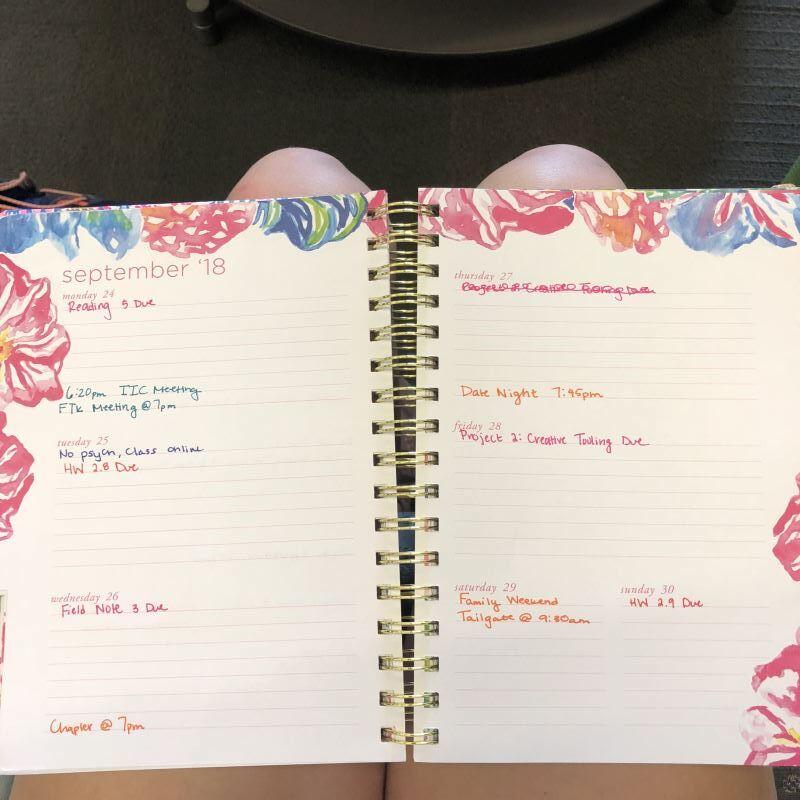 september '18
monday 24
Reading 5 Due
6:20pm IIC Meeting
FTK Meeting @ 7pm
tuesday 25
No psych, Class online
HW 2.8 Due
wednesday 26
Field Note 3 Due
Chapter @ 7pm
thursday 27
Creative Tooling Due
Date Night 7:45pm
friday 28
Project 2: Creative Tooling Due
saturday 29
Family Weekend
Tailgate @ 9:30am
sunday 30
HW 2.9 Due